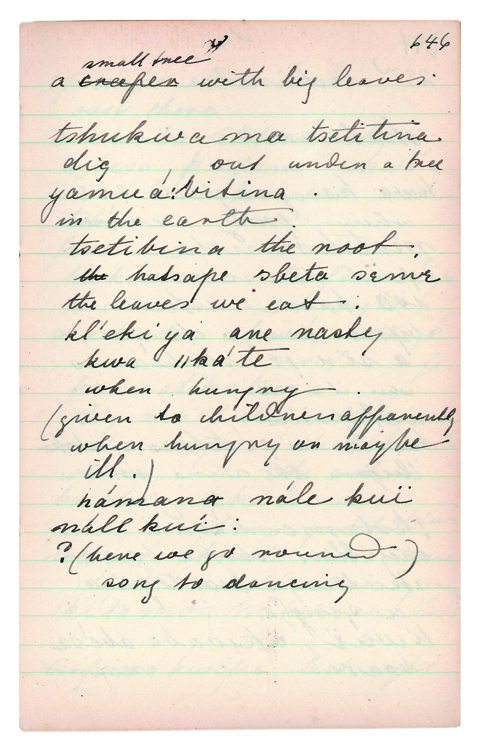 646
small tree
a creeper with big leaves.
tshukwa ma tsetitina
dig out under a tree
yamuá:bitina.
in the earth.
tsetibina the root.
the hatsape sbeta
the leaves we eat.
kl'eki ya are nasty
kwa ||ká te
when hungry.
(given to children apparently
when hungry or maybe
ill.)
hámana nále kuï
náll kuí:
?(here we go round)
song to dancing